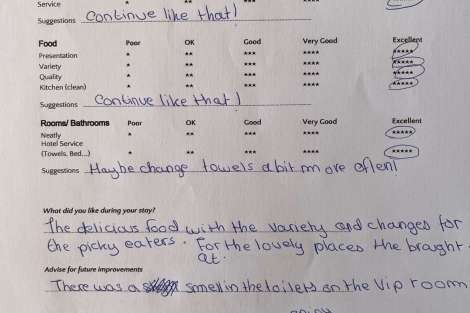 Service * ** *** ****
Suggestions Continue like that)
Food Poor OK Good Very Good Excellent
Presentation * ** *** **** *****
Variety * ** *** **** *****
Quality * ** *** **** *****
Kitchen (clean) * ** *** **** *****
Suggestions Continue like that)
Rooms/ Bathrooms Poor OK Good Very Good Excellent
Neatly * ** *** **** *****
Hotel Service
(Towels, Bed...) * ** *** **** *****
Suggestions Maybe change towels a bit more often!
What did you like during your stay?
The delicious food with the variety and changes for
the picky eaters. For the lovely places the braught
at.
Advise for future improvements
There was a smell in the toilets on the Vip room